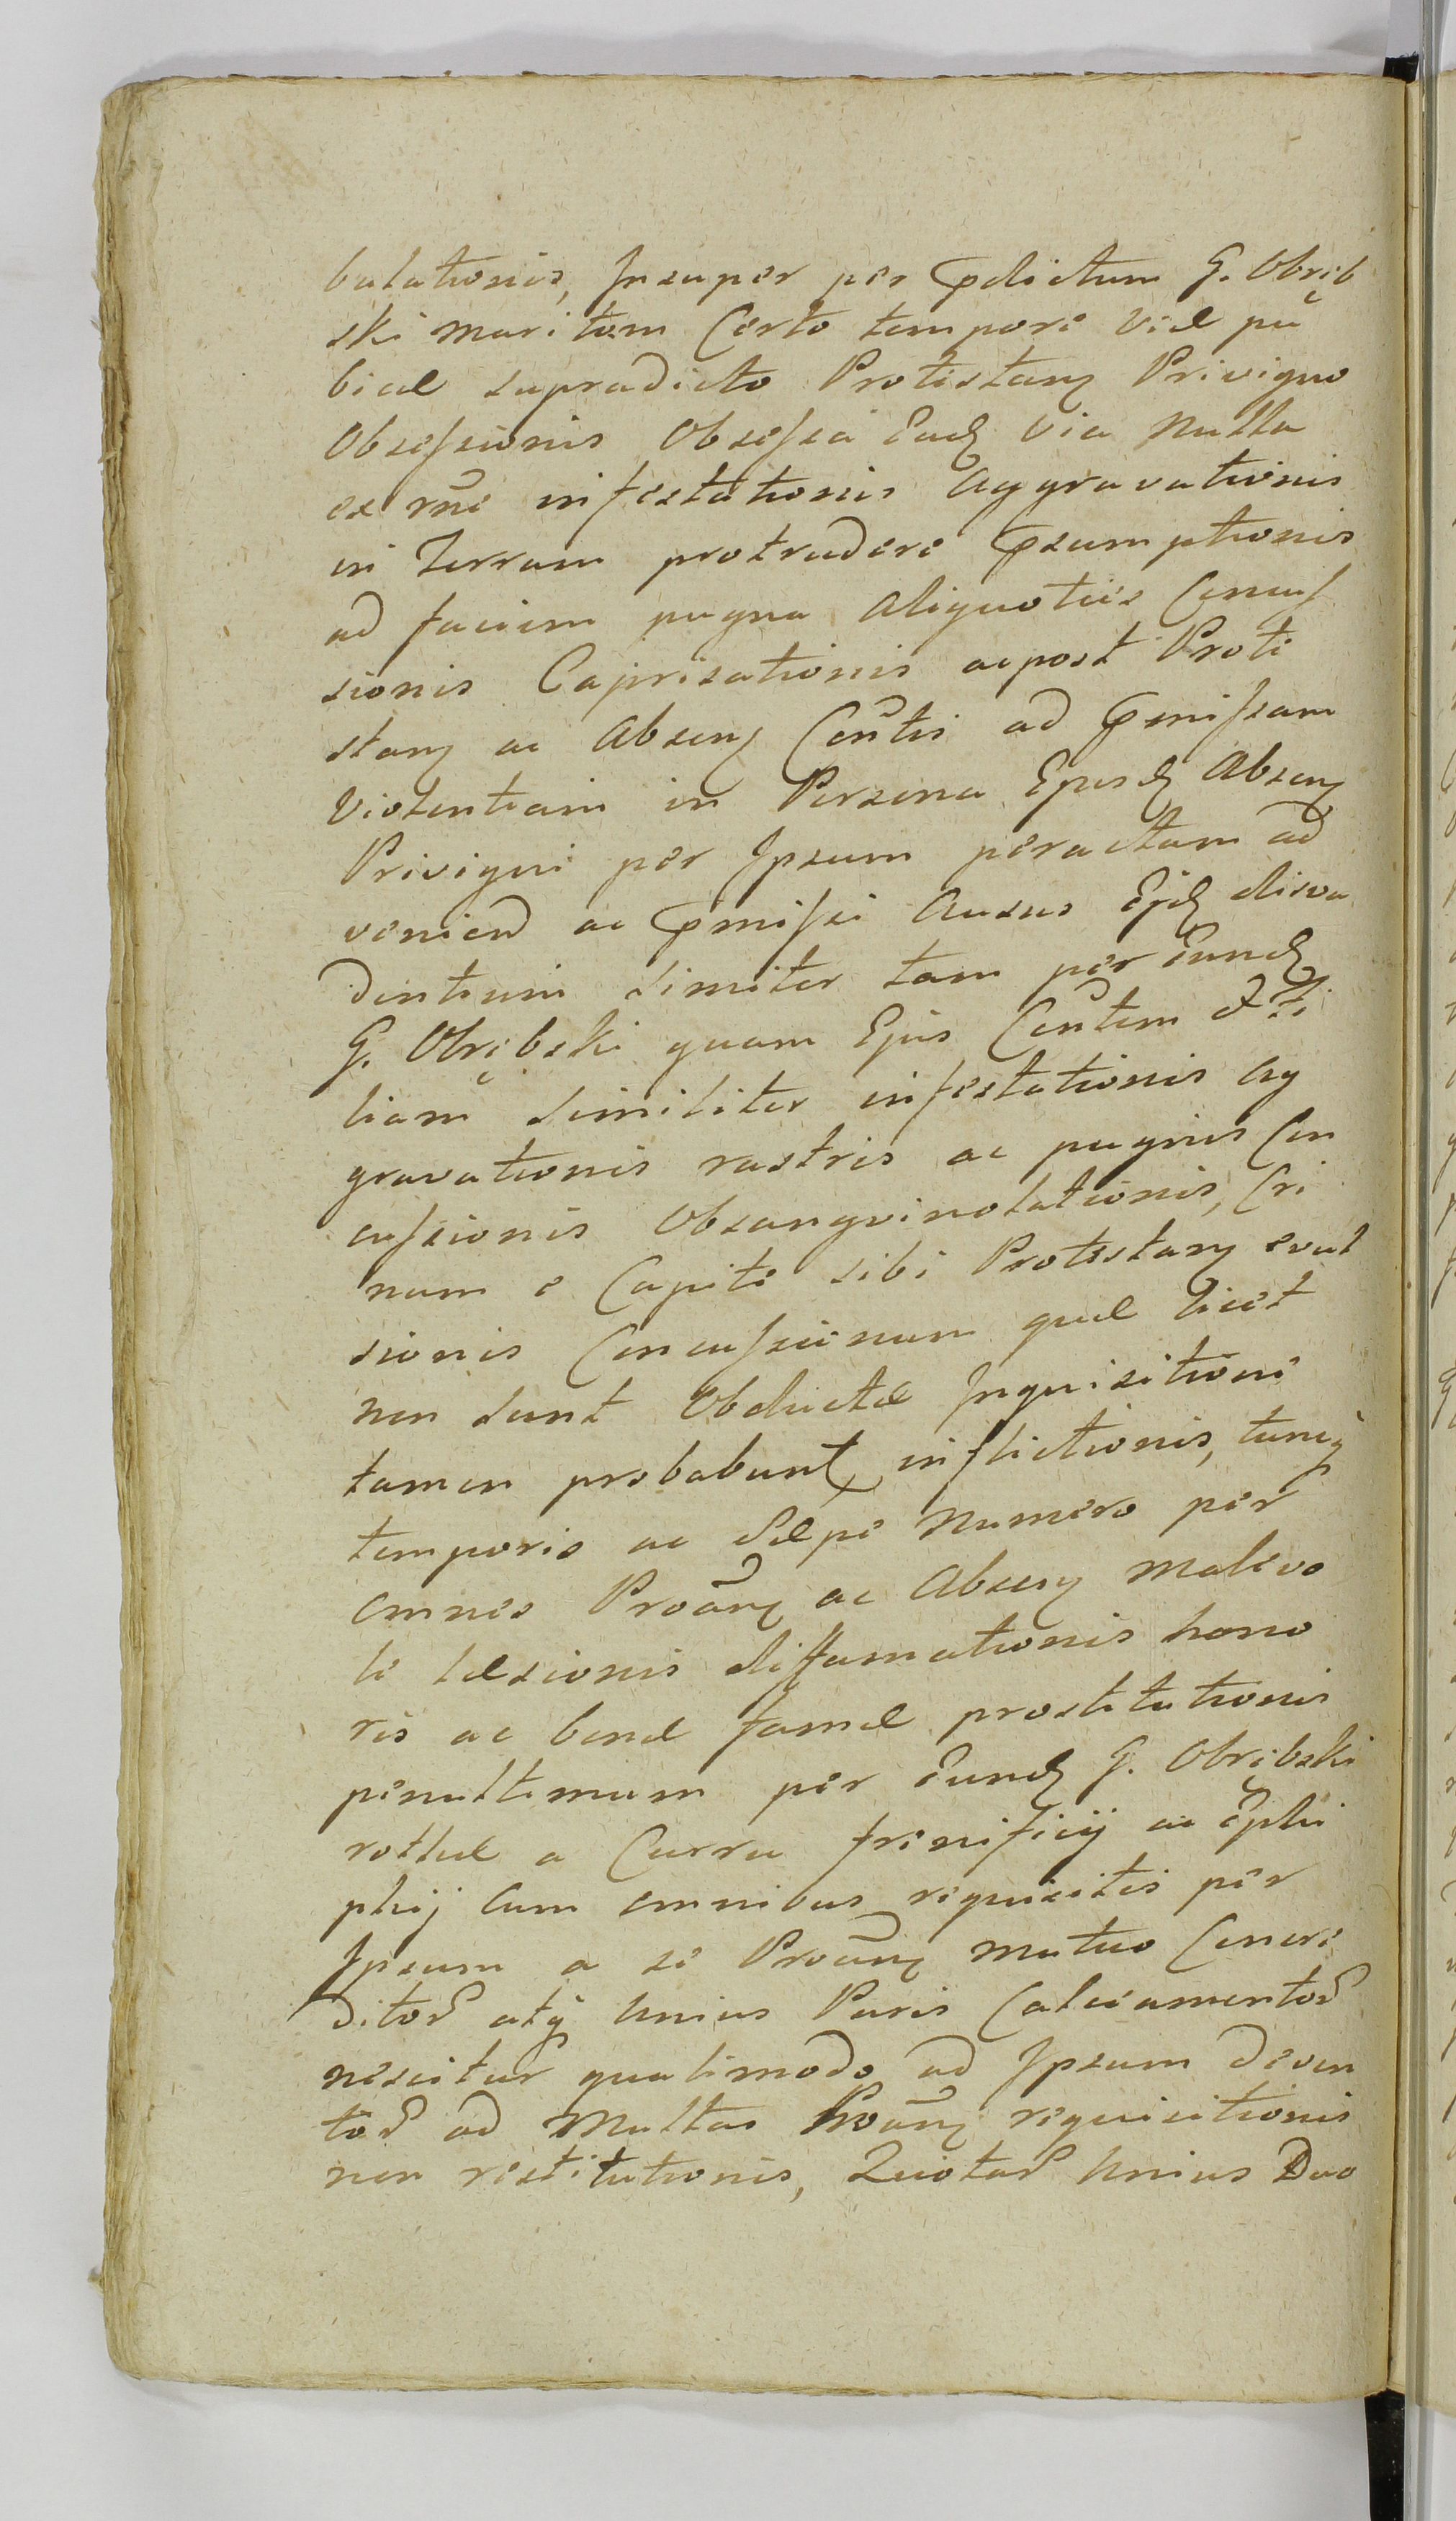 bulationis, Insuper per Pdictum G. Obręb
ski maritum Certo tempore viæ pu
bicæ supradicto Protestanz Privigno
Obseſsionis Obseſsa Eadz via Nulla
ex rñe infestationis Aggravationis
in Terram protrudere Psumptionis
ad faciem pugna Aliquoties Concuſ
sionis Caprisationis ac post Prote
stanz ac Absenz Conthis ad Pmiſsam
Violentiam in Persona Ejusdz Absenz
Privigni per Ipsum peractam ad
veniend ac Pmiſsi Ausus Ejdz disva
dentium simiter tam per Eundz
G. Obrębski quam Ejus Conthem
liam Similiter infestationis Ag
gravationis rastris ac pugnis Con
cuſsionis Obsangvinolationis, Cri
num e Capite sibi Protestanz evul
sionis Concuſsionum quæ licet
non sunt Obductæ Inquisitione
tamen probabunt inflictionis, tuncq̃
temporis ac Sæpe Numero per
Omnes Proãnz ac Absenz Malevo
le læsionis diffamationis hono
ris ac bonæ famæ prostitutionis
penultimum per Eundz G. Obrębski
rothæ a Curru frenificij ac Ephi
phij Cum omnibus requisitis per
Ipsum a se Proãnz mutuo Concre
ditor atq̃ Unius Paris Calceamentor
nescitur qualimodo ad Ipsum deven
tor ad Multas Proãnz requisitionis
non restitutionis, Quotar Unius Duo